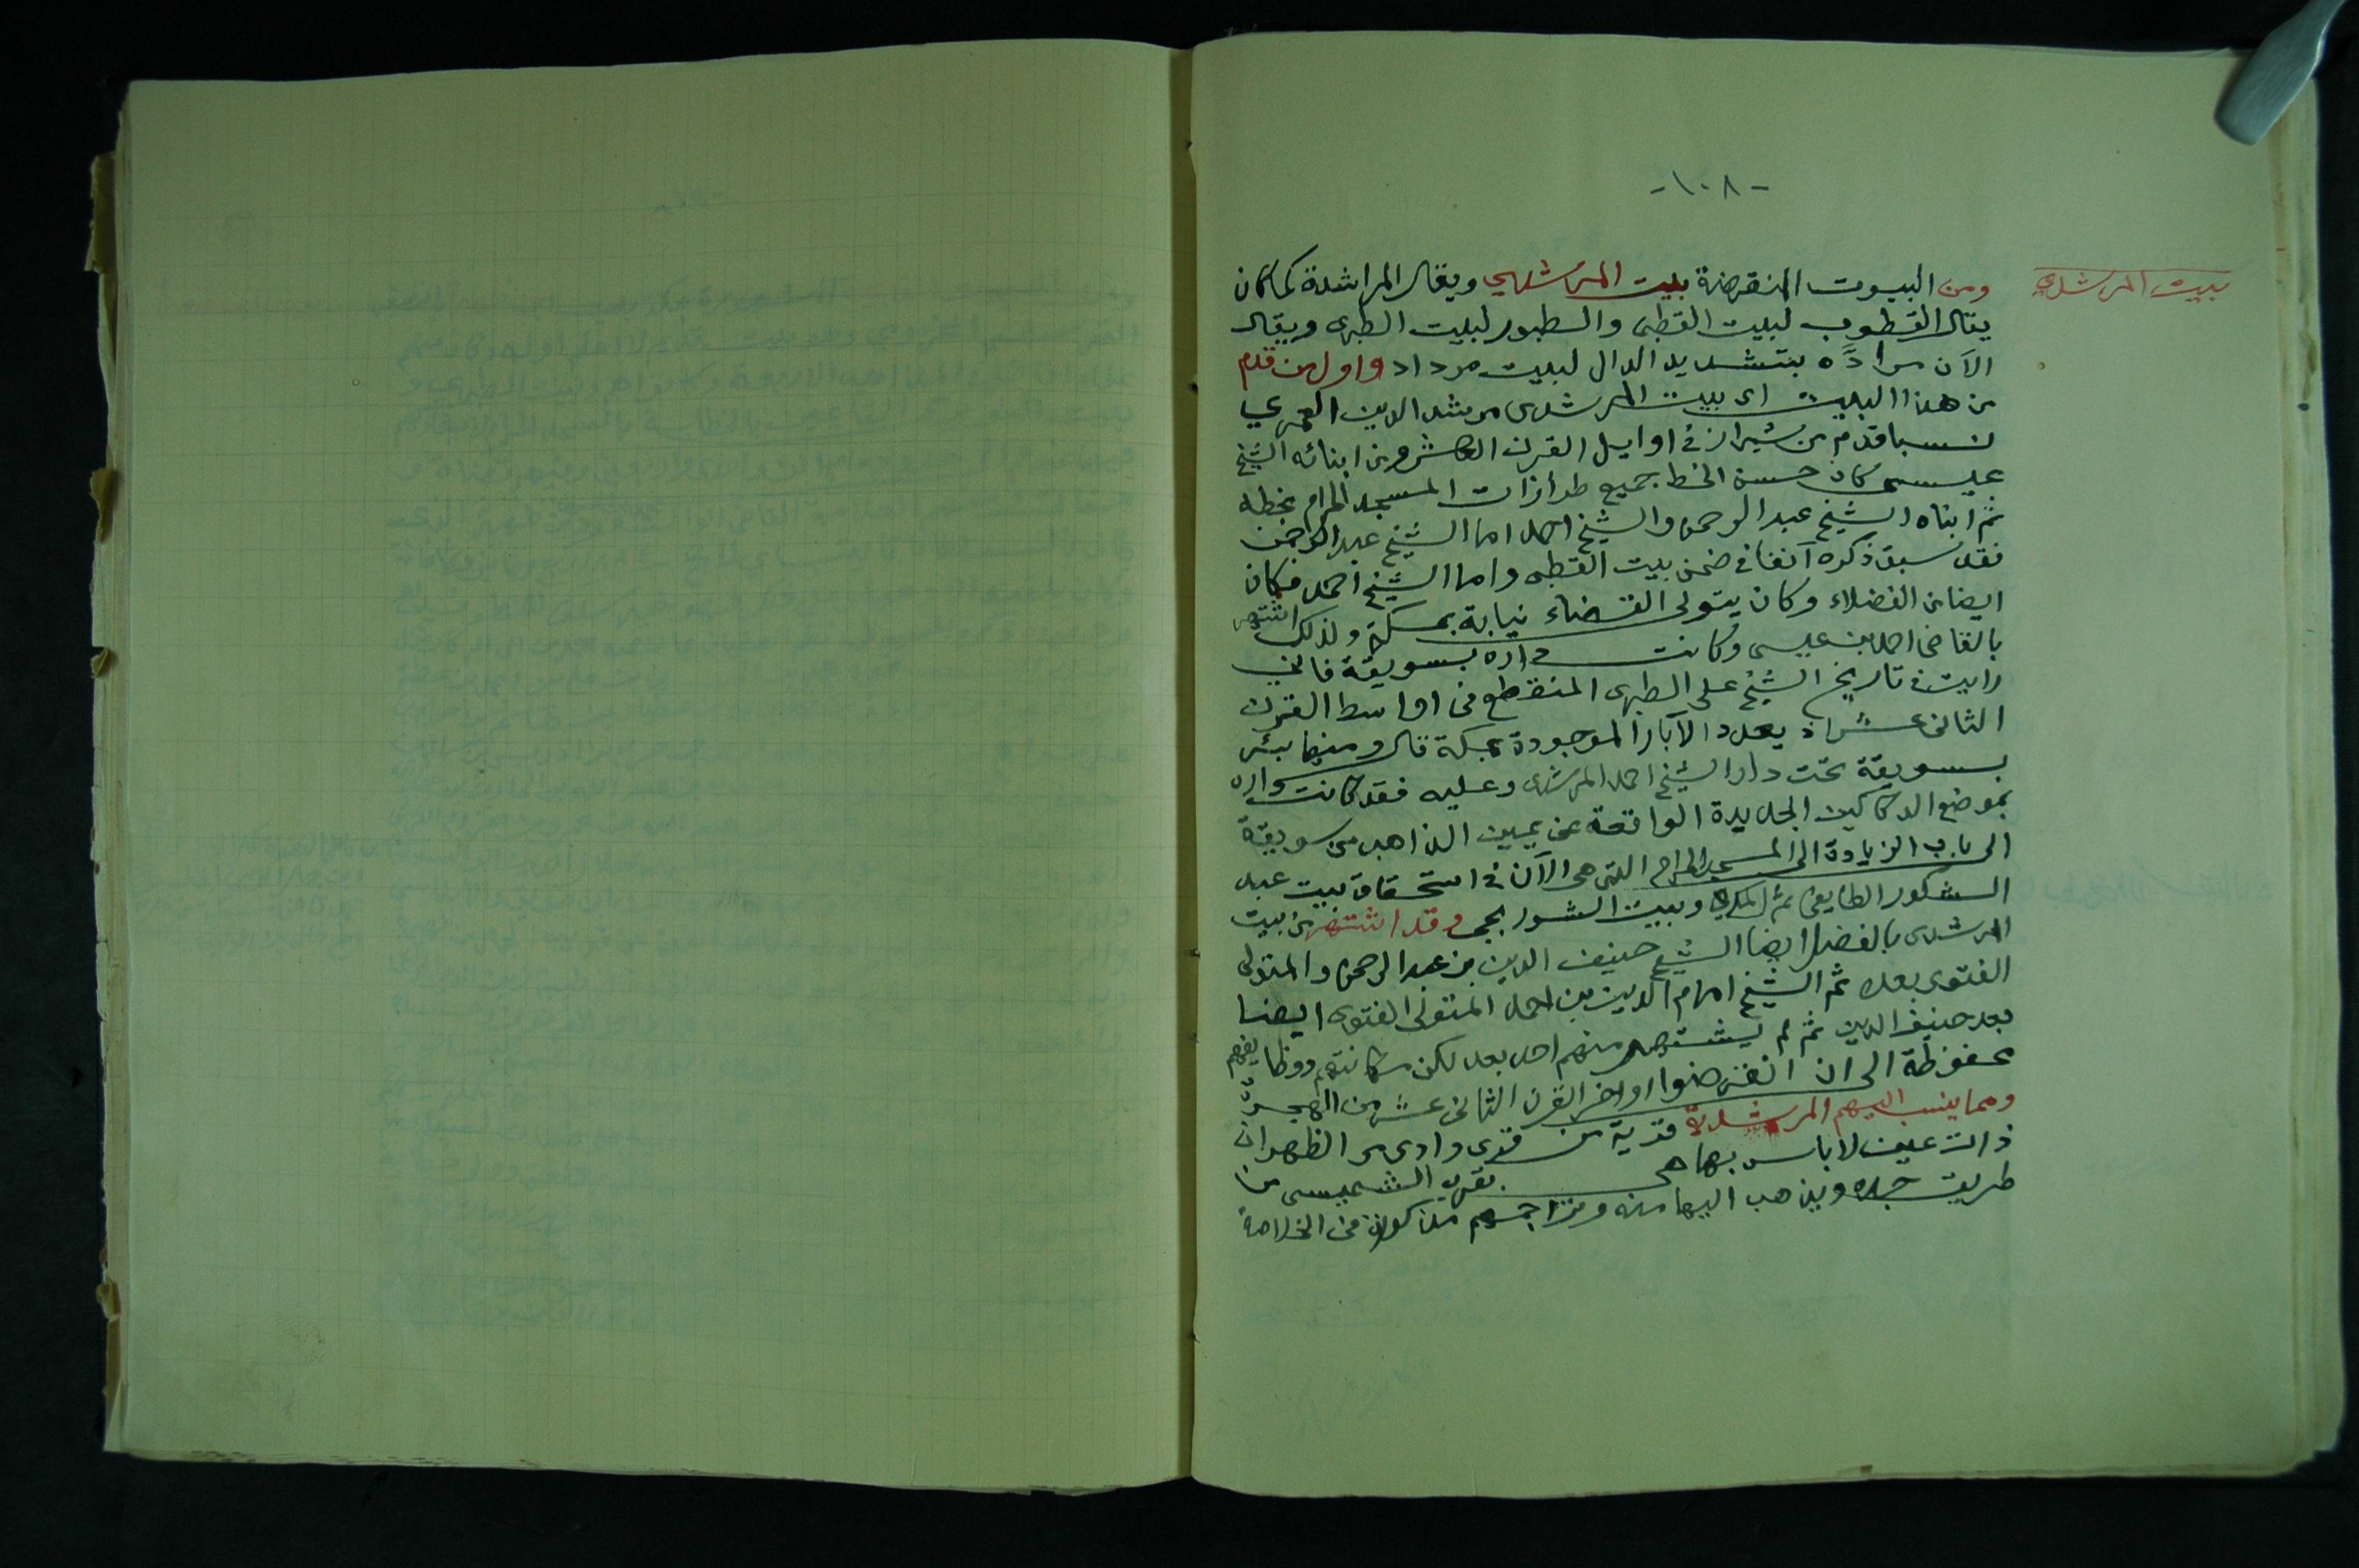 -١٠٨-
بيت المرشدي
ومن البيوت المنقرضة بيت المرشدي ويقال المراشدة كما كان
يقال القطوب لبيت القطبى والطبور لبيت الطبرى ويقال
الآن مرادَّه بتشديد الدال لبيت مرداد واول من قدم
من هذا البيت اى بيت المرشدى مرشد الدين العمري
نسبا قدم من شيراز فى اوايل القرن العاشر ومن ابنائه الشيخ
عيسى كان حسن الخط جميع طرازات المسجد الحرام بخطه
ثم ابناه الشيخ عبد الرحمن والشيخ احمد اما الشيخ عبد الرحمن
فقد سبق ذكره آنفا فى ضمن بيت القطبى واما الشيخ احمد فكان
ايضا من الفضلاء وكان يتولى القضاء نيابة بمكة ولذلك اشتهر
بالقاضى احمد بن عيسى وكانت داره بسويقة فانى
رايت فى تاريخ الشيخ على الطبرى المنقطع فى اواسط القرن
الثانى عشر اذ يعدد الآبار الموجودة بمكة قال ومنها بئر
بسويقة تحت دار الشيخ احمد المرشدى وعليه فقد كانت داره
بموضع الدكاكين الجديدة الواقعة عن يمين الذاهب من سويقة
الى باب الزيادة الى المسجد الحرام التى هى الآن فى استحقاق بيت عبد
الشكور الطايفى ثم المكي وبيت الشوربجى وقد اشتهر من بيت
المرشدى بالفضل ايضا الشيخ حنيف الدين بن عبد الرحمن والمتولى
الفتوى بعده ثم الشيخ امام الدين بن احمد المتولى الفتوى ايضا
بعد حنيف الدين ثم لم يشتهر منهم احد بعد لكن مكانتهم ووظايفهم
محفوظة الى ان انقرضوا اواخر القرن الثانى عشر من الهجرة
ومما ينسب اليهم المرشدية قرية من قرى وادى مر الظهران
ذات عين لا باس بها هى بقرب الشميسى من
طريق جده ويذهب اليها منه وتراجمهم مذكورة فى الخلاصة